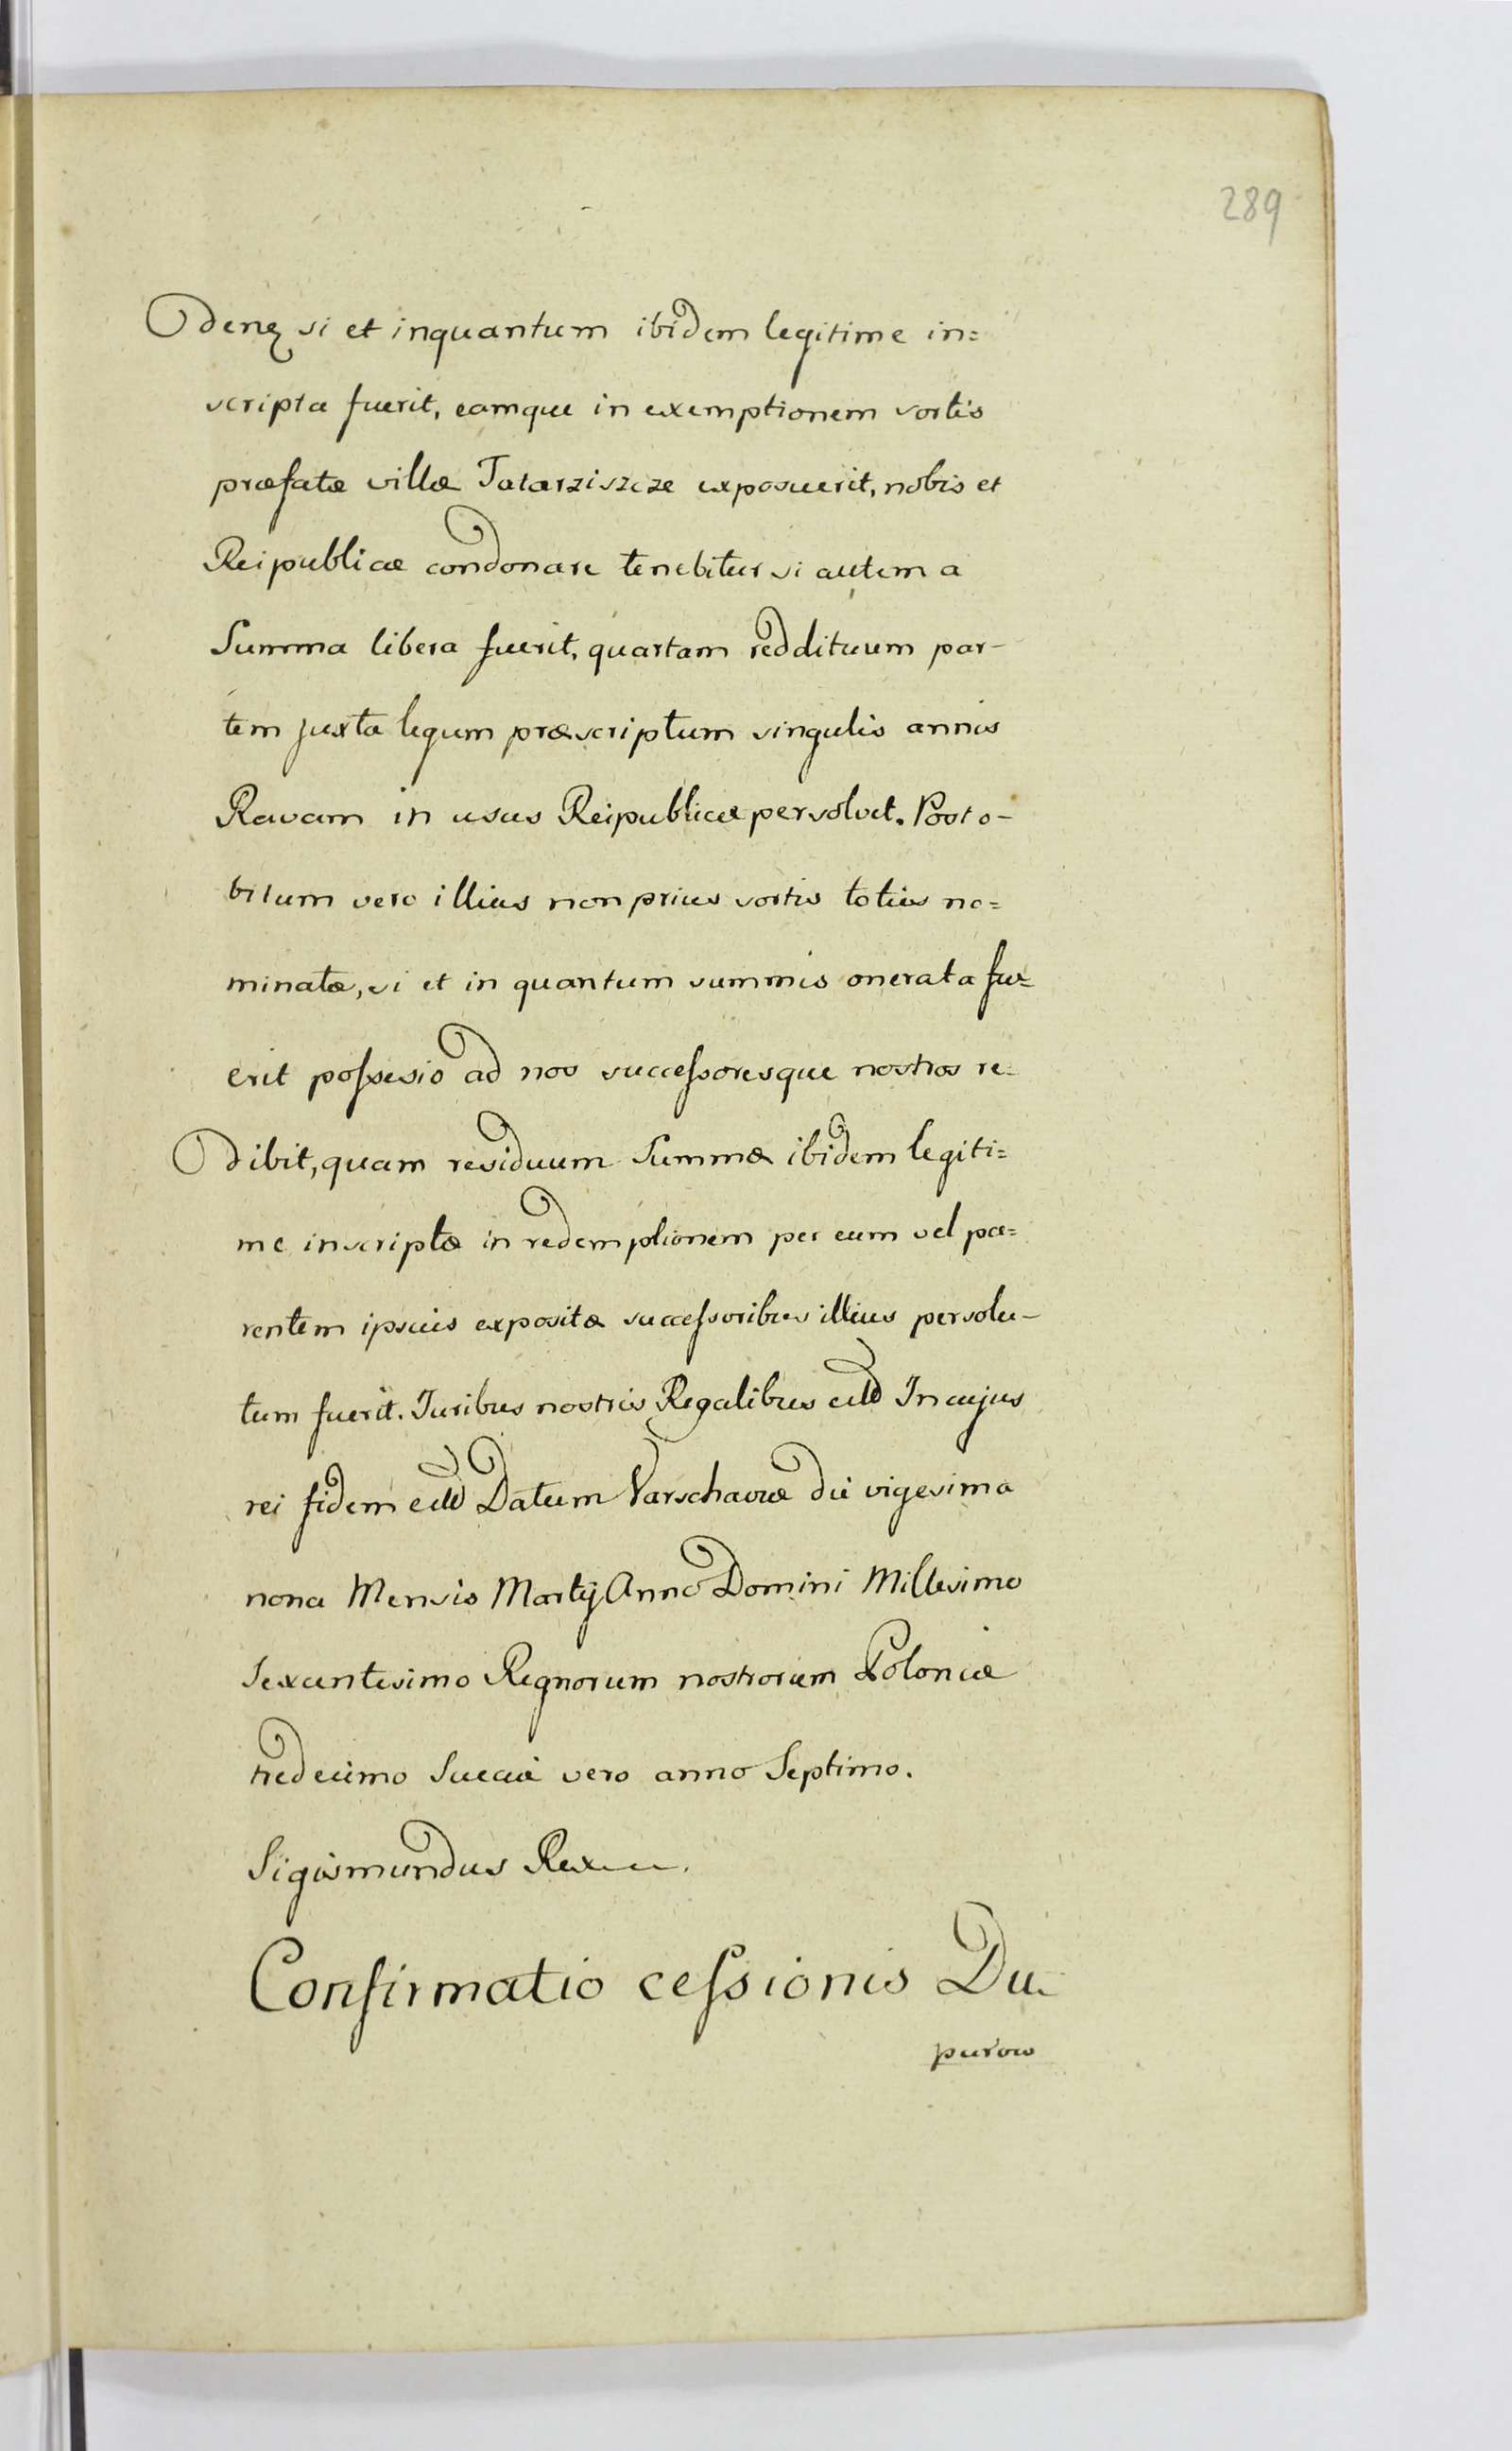 289
denꝗ si et inquantum ibidem legitime in=
scripta fuerit, eamque in exemptionem sortis
præfatæ villæ Tatarziszcze exposuerit, nobis et
Reipublicæ condonare tenebitur si autem a
Summa libera fuerit, quartam reddituum par-
tem juxta legum præscriptum singulis annis
Ravam in usus Reipublicæ persolvet. Post o-
bitum vero illius non prius sortis totius no=
minatæ, si et in quantum summis onerata fu=
erit poſsesio ad nos succeſsoresque nostros re=
dibit, quam residuum Summæ ibidem legiti=
me inscriptæ in redemptionem per eum vel pa=
rentem ipsuis expositæ succeſsoribus illius persolu-
tum fuerit. Juribus nostris Regalibus In cujus
rei fidem Datum Varschaviæ die vigesima
nona Mensis Martij Anno Domini Millesimo
Sexcentesimo Regnorum nostrorum Poloniæ
tredecimo Sueciæ vero anno Septimo.
Sigismundus Rex
Confirmatio ceſsionis Du-
purow